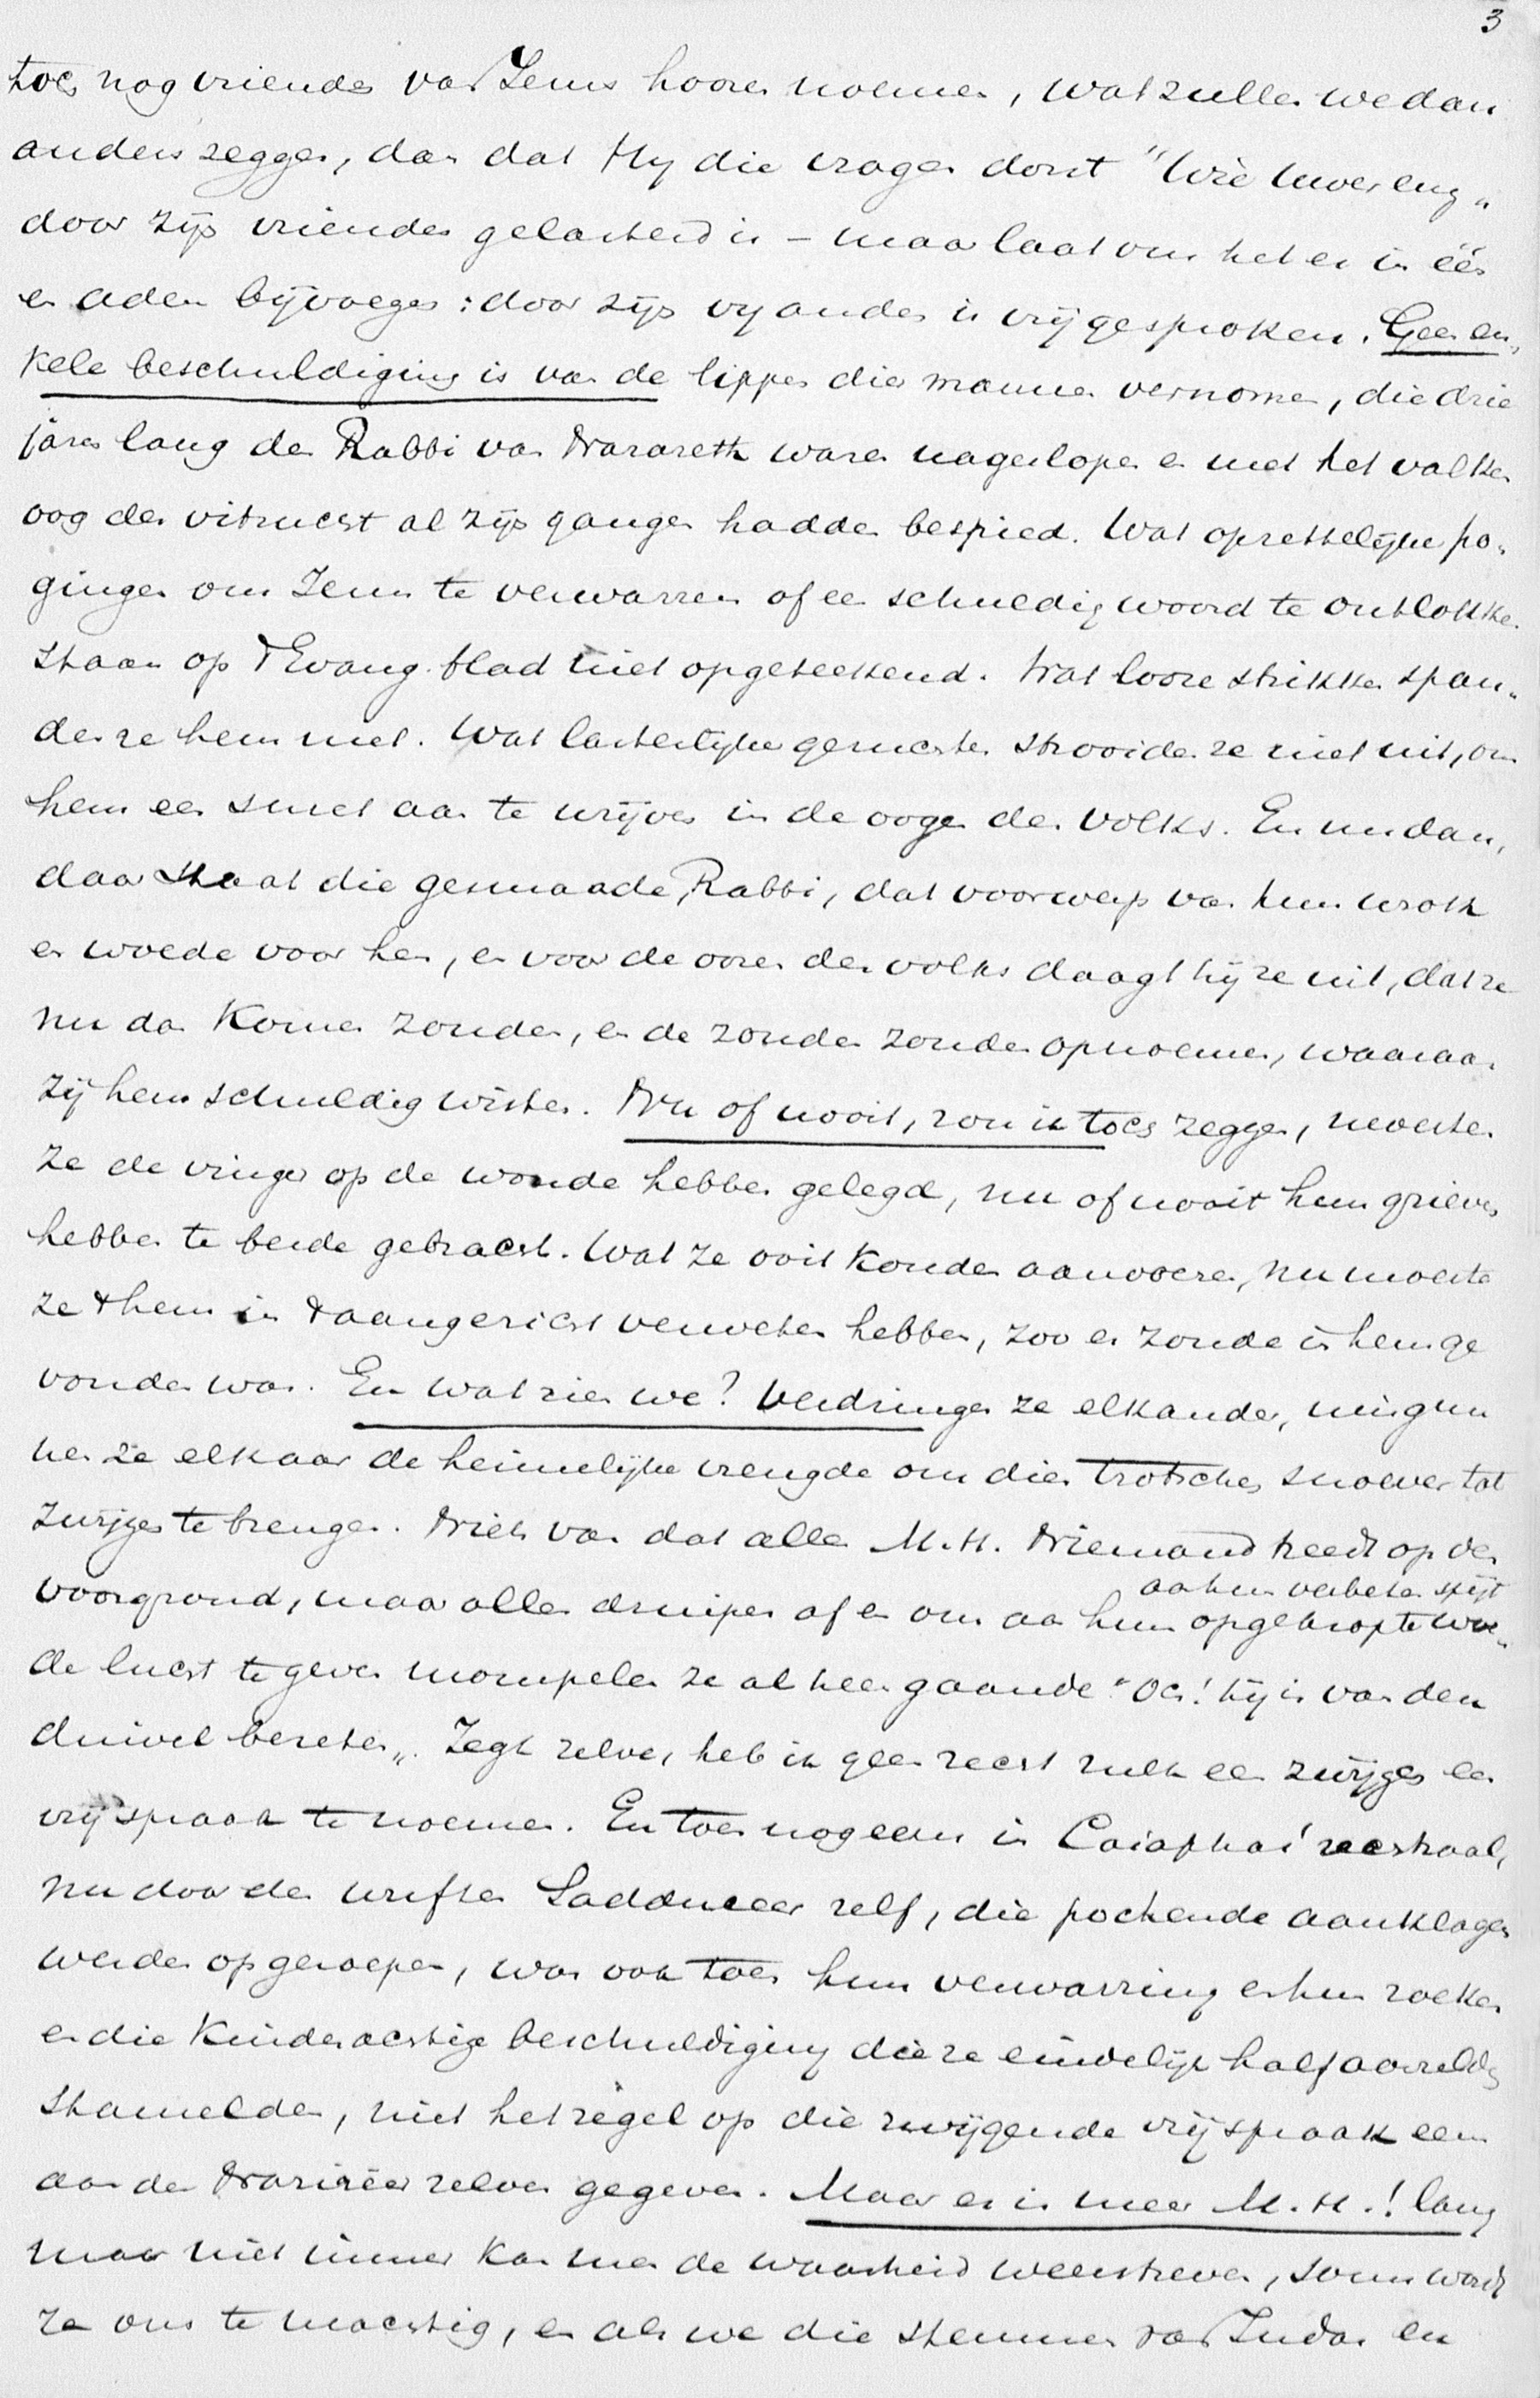 3
toch nog vrienden van Jezus hooren noemen, wat zullen we dan
anders zeggen, dan dat Hy die vragen dorst "Wie Uwer enz„
door zijn vrienden gelasterd is – maar laat ons het er in één
en adem bijvoegen: door zijn vyanden is vrijgesproken. Geen en„
kele beschuldiging is van de lippen dier mannen vernomen, die drie
jaren lang den Rabbi van Nazareth waren nageslopen en met het valken
oog der vitzucht al zijn gangen hadden bespied. Wat opzettelijke po„
gingen om Jezus te verwarren of een schuldig woord te ontlokken
staan op 't Evang. blad niet opgeteekend. Wat looze strikken span„
den ze hem niet. Wat lasterlijke geruchten strooiden ze niet uit, om
hem een smet aan te wrijven in de oogen des volks. En nu dan,
daar staat die gesmaade Rabbi, dat voorwerp van hun wrok
en woede voor hen, en voor de ooren des volks daagt hij ze uit, dat ze
nu dan komen zouden, en de zonde zouden opnoemen, waaraan
zij hem schuldig wisten. Nu of nooit, zou ik toch zeggen, moesten
ze de vinger op de wonde hebben gelegd, nu of nooit hun grieven
hebben te berde gebracht. Wat ze ooit konden aanvoeren, nu moesten
ze 't hem in 't aangezicht verweten hebben, zoo er zonde in hem ge
vonden was. En wat zien we? Verdringen ze elkander, misgun
nen ze elkaar de heimelijke vreugde om dien trotschen snoever tot
zwijgen te brengen. Niets van dat alles M.H. Niemand treedt op den
voorgrond, maar allen druipen af en om aan hun opgekropte woe„
aan hun verbeten spijt
de lucht te geven mompelen ze al heengaande "Och! hij is van den
duivel bezeten„. Zegt zelven, heb ik geen recht zulk een zwijgen een
vrijspraak te noemen. En toen nogeens in Caiaphas' rechtzaal,
nu door den wuften Sadduceer zelf, die pochende aanklagers
werden opgeroepen, was ook toen hun verwarring en hun zoeken
en die kinderachtige beschuldiging die ze eindelijk half aarzelend
stamelden, niet het zegel op die zwijgende vrijspraak eens
aan den Nariréer zelven gegeven. Maar er is meer M.H.! lang
maar niet immer kan men de waarheid weerstreven, soms wordt
ze ons te machtig, en als we die stemmen van Judas en